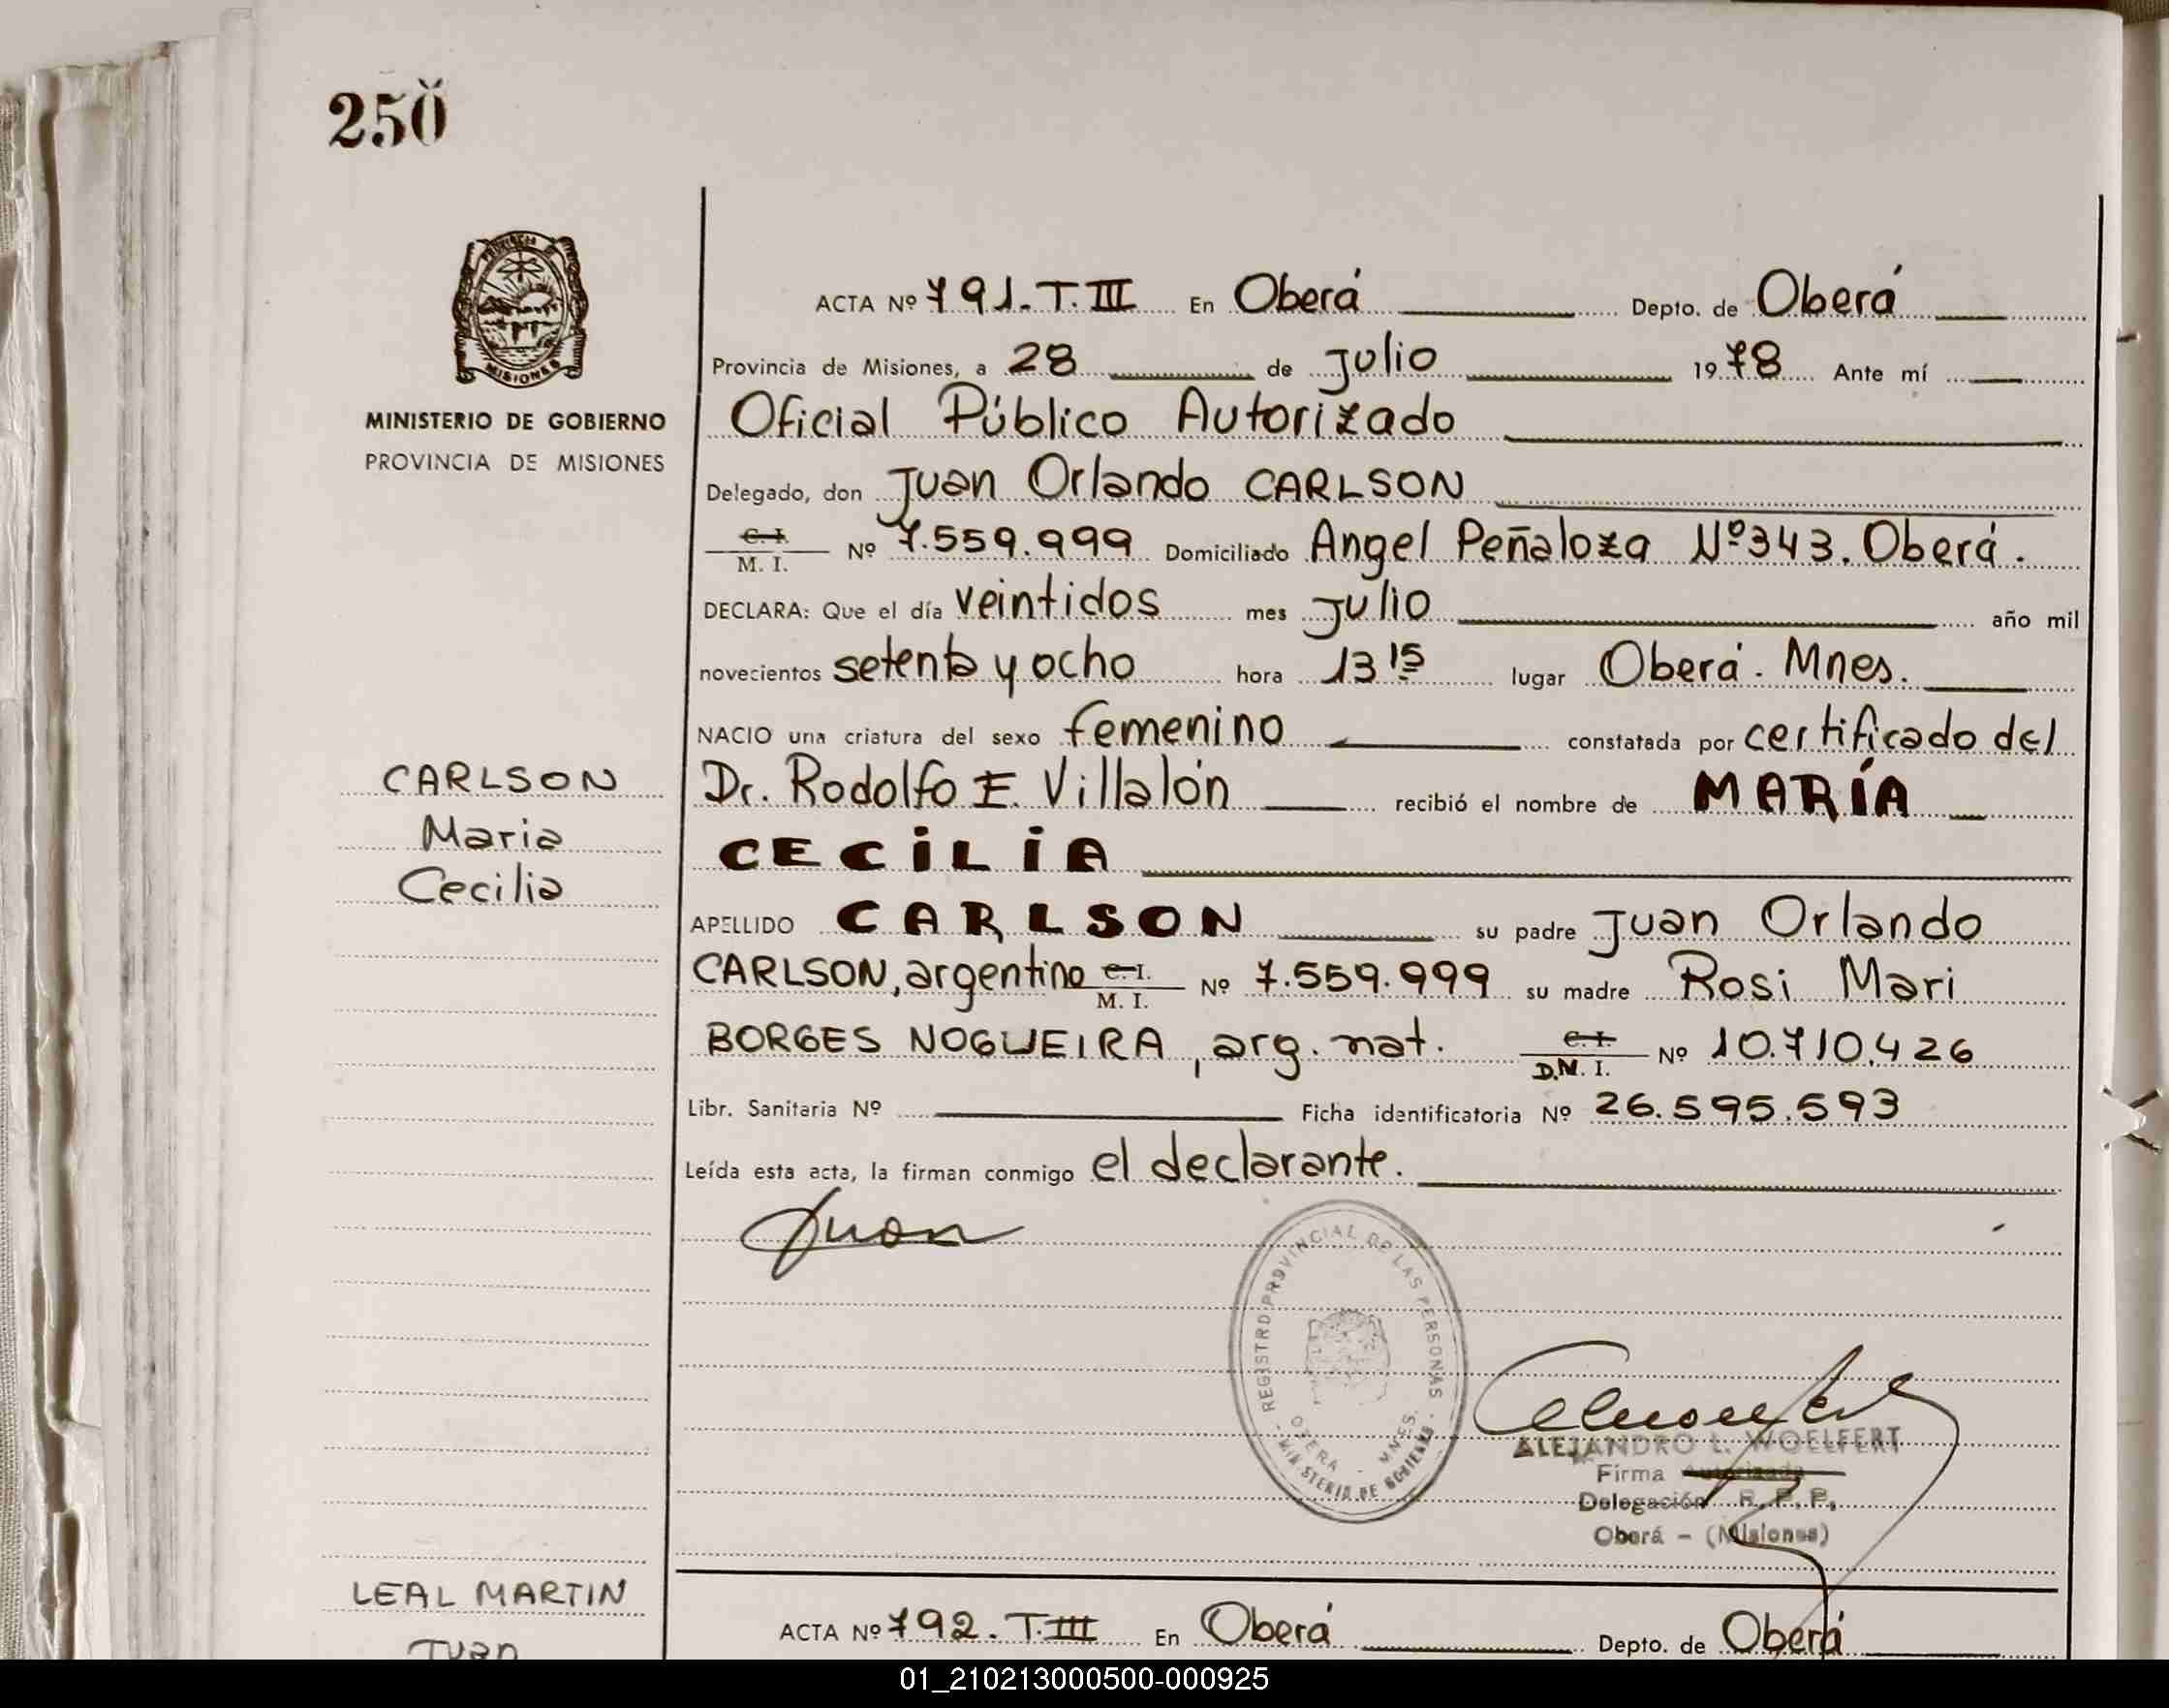 250
PROVINCIA DE
MISIONES
MINISTERIO DE GOBIERNO
PROVINCIA DE MISIONES
ACTA Nº 791-T.III En Oberá Depto. de Oberá
Provincia de Misiones, a 28 de julio 1978 Ante mí
Oficial Público Autorizado
Delegado, don Juan Orlando CARLSON
C. I.
M. I. Nº 7.559.999 Domiciliado Angel Peñaloza Nº343. Oberá.
DECLARA: Que el día veintidos mes julio año mil
novecientos setenta y ocho hora 13 15 lugar Oberá. Mnes.
NACIO una criatura del sexo femenino constatada por certificado del
Dr. Rodolfo E. Villalón recibió el nombre de MARÍA
CECILIA
APELLIDO CARLSON su padre Juan Orlando
CARLSON, argentino C. I. M. I. Nº 7.559.999 su madre Rosi Mari
BORGES NOGUEIRA, arg. nat. C. I. D.N. I. Nº 10.710.426
Libr. Sanitaria Nº Ficha identificatoria Nº 26.595.593
Leída esta acta, la firman conmigo el declarante.
CARLSON
Maria
Cecilia
Juan
REGISTRO PROVINCIAL DE LAS PERSONAS
OBERA - MNES.
MINISTERIO DE GOBIERNO
ALEJANDRO L. WOELFERT
Firma Autorizada
Delegación R. P. P.
Oberá - (Misiones)
LEAL MARTIN
Juan
ACTA Nº 792. T.III En Oberá Depto. de Oberá
01_210213000500-000925